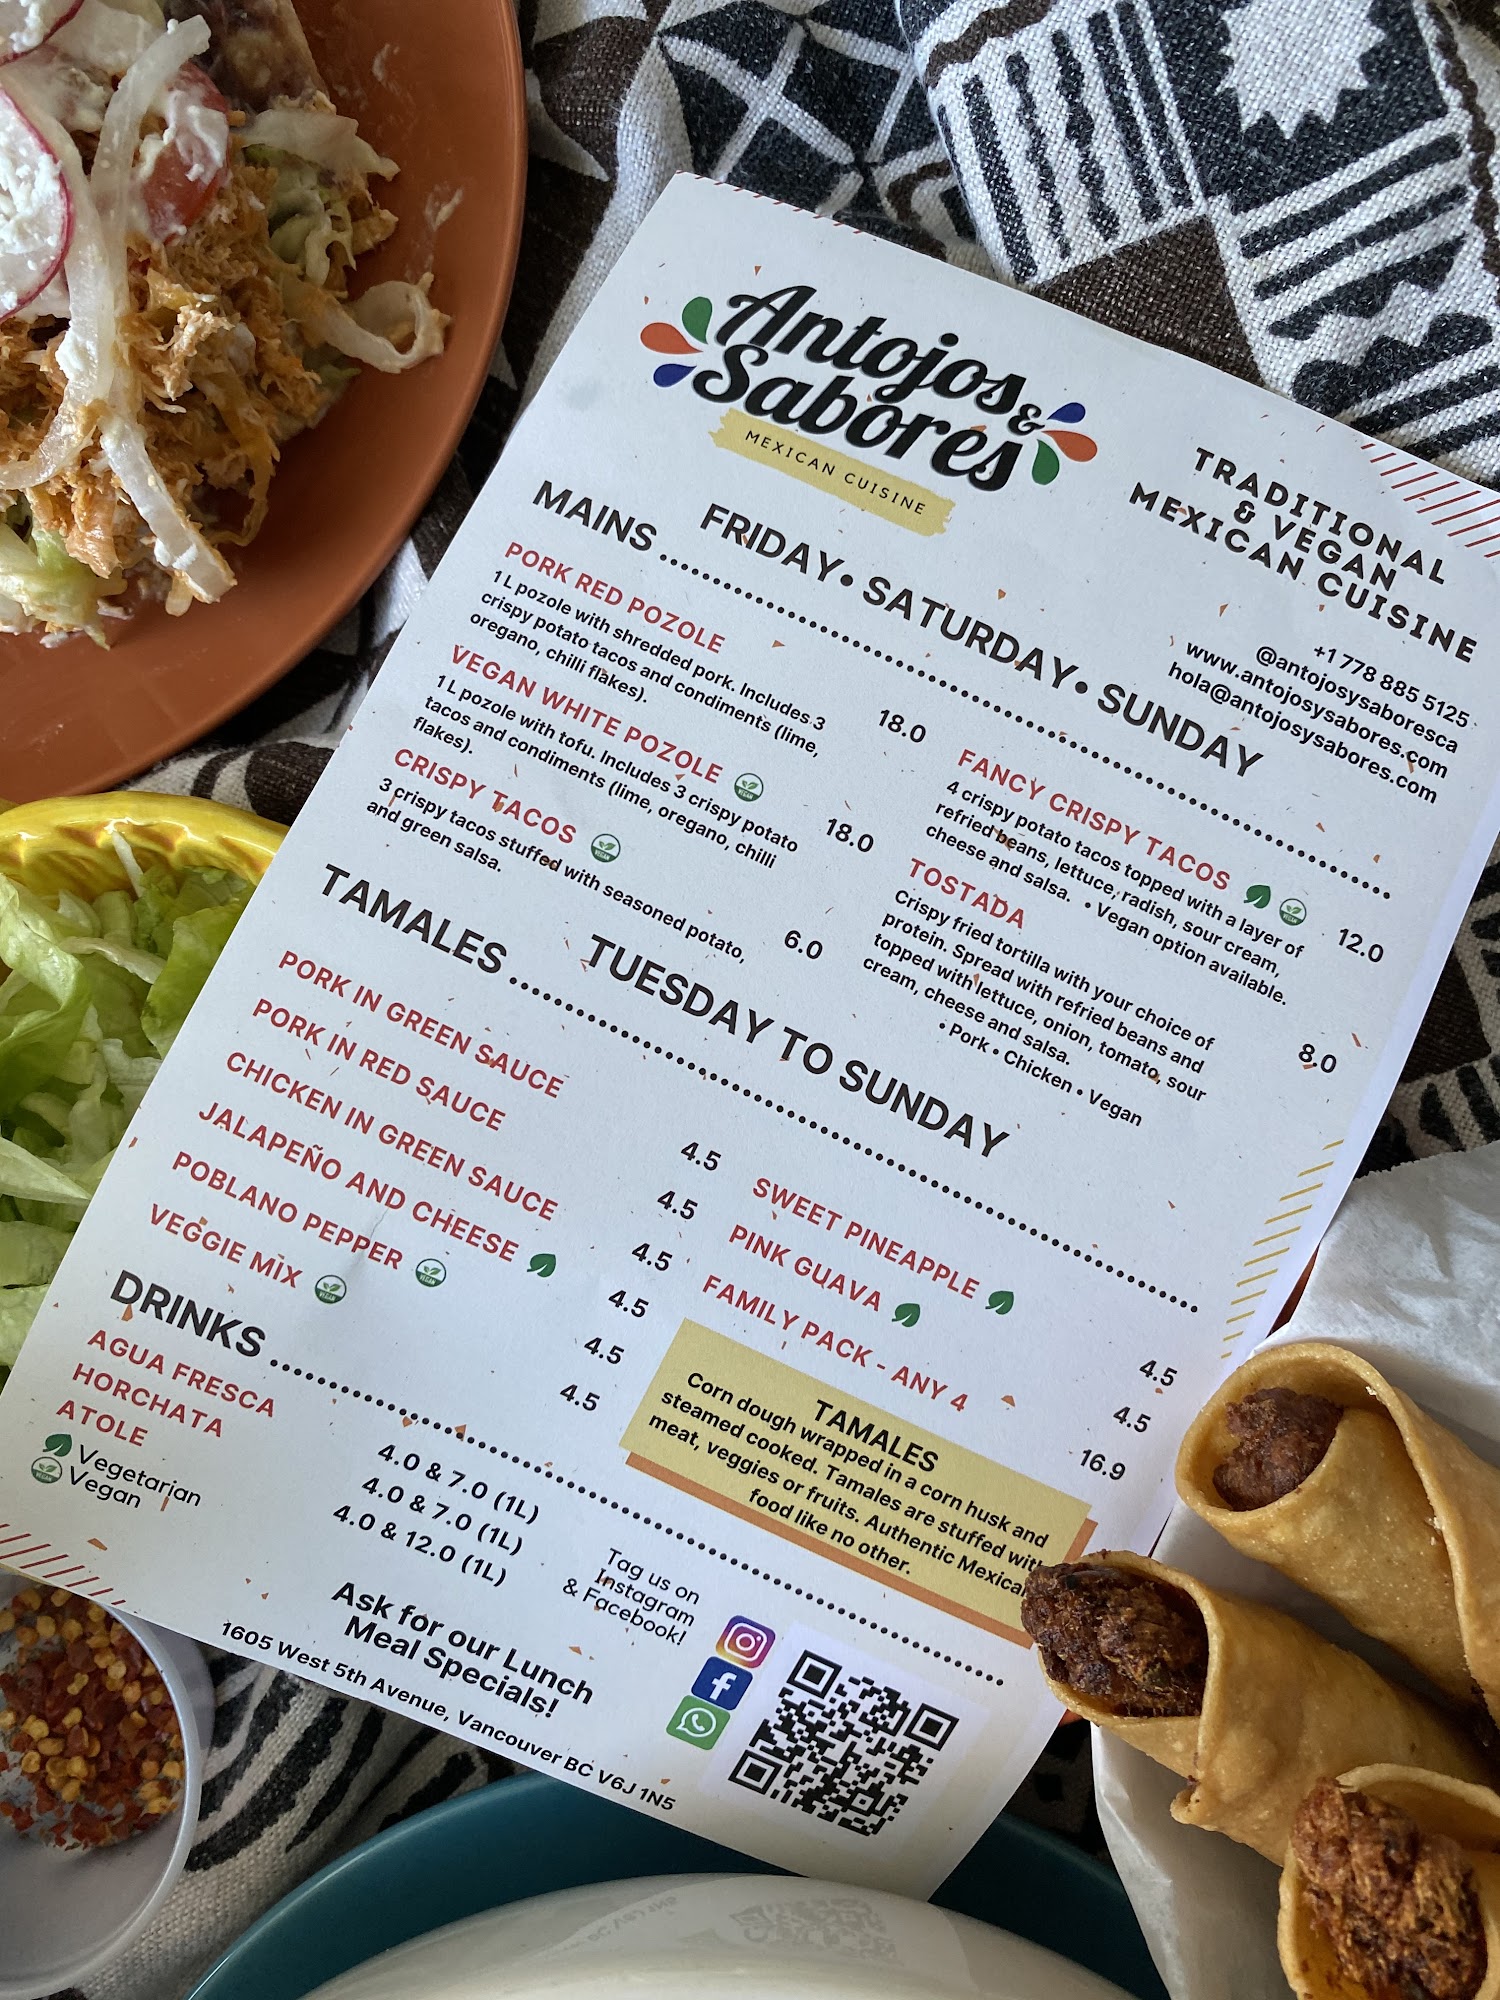 Antojos &
Sabores
MEXICAN CUISINE
TRADITIONAL
& VEGAN
MEXICAN CUISINE
+1 778 885 5125
@antojosysaboresca
www.antojosysabores.com
hola@antojosysabores.com
FRIDAY • SATURDAY • SUNDAY
MAINS
PORK RED POZOLE
1 L pozole with shredded pork. Includes 3
crispy potato tacos and condiments (lime,
oregano, chilli flakes).
18.0
VEGAN WHITE POZOLE
VEGAN
1 L pozole with tofu. Includes 3 crispy potato
tacos and condiments (lime, oregano, chilli
flakes).
18.0
CRISPY TACOS
VEGAN
3 crispy tacos stuffed with seasoned potato,
and green salsa.
6.0
FANCY CRISPY TACOS
VEGAN
4 crispy potato tacos topped with a layer of
refried beans, lettuce, radish, sour cream,
cheese and salsa. • Vegan option available.
12.0
TOSTADA
Crispy fried tortilla with your choice of
protein. Spread with refried beans and
topped with lettuce, onion, tomato, sour
cream, cheese and salsa.
• Pork • Chicken • Vegan
8.0
TUESDAY TO SUNDAY
TAMALES
PORK IN GREEN SAUCE 4.5
PORK IN RED SAUCE 4.5
CHICKEN IN GREEN SAUCE 4.5
JALAPEÑO AND CHEESE 4.5
POBLANO PEPPER VEGAN 4.5
VEGGIE MIX VEGAN 4.5
SWEET PINEAPPLE 4.5
PINK GUAVA 4.5
FAMILY PACK - ANY 4 16.9
TAMALES
Corn dough wrapped in a corn husk and
steamed cooked. Tamales are stuffed with
meat, veggies or fruits. Authentic Mexican
food like no other.
DRINKS
AGUA FRESCA 4.0 & 7.0 (1L)
HORCHATA 4.0 & 7.0 (1L)
ATOLE 4.0 & 12.0 (1L)
Vegetarian
VEGAN Vegan
Ask for our Lunch
Meal Specials!
1605 West 5th Avenue, Vancouver BC V6J 1N5
Tag us on
Instagram
& Facebook!